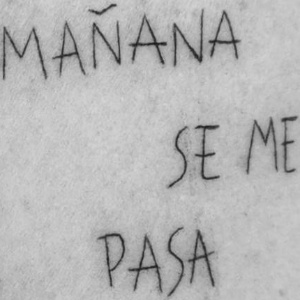 MAÑANA
SE ME
PASA